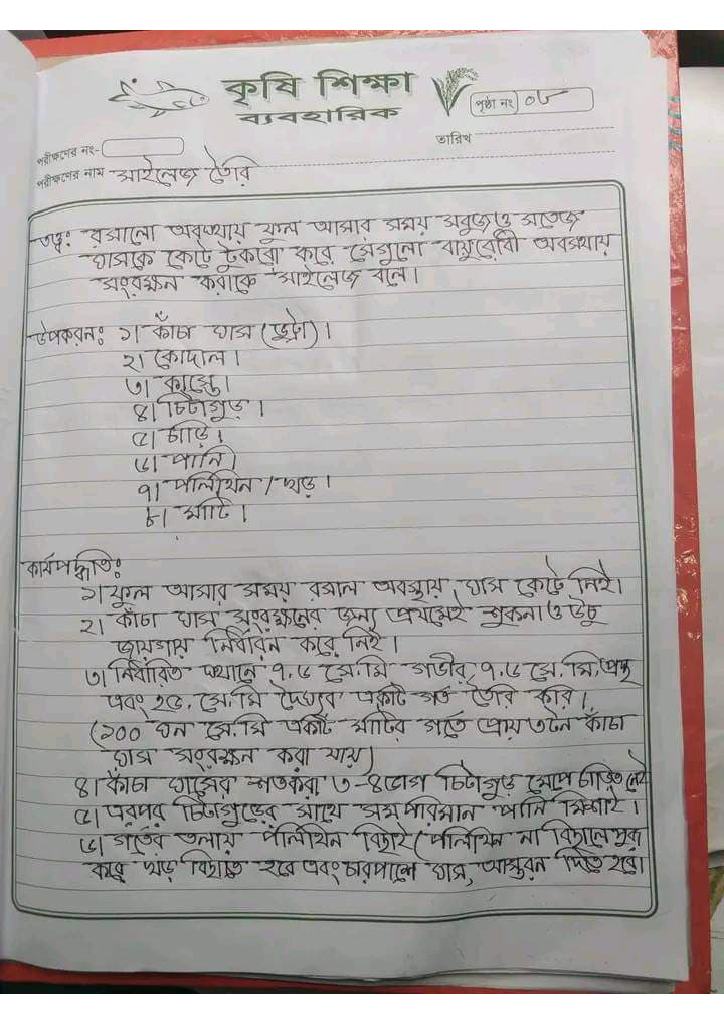 কৃষি শিক্ষা
ব্যবহারিক
পৃষ্ঠা নং ০৮
তারিখ
পরীক্ষণের নং-
পরীক্ষণের নাম সাইলেজ তৈরি
তত্ত্ব: রসালো অবস্থায় ফুল আসার সময় সবুজ ও সতেজ
ঘাসকে কেটে টুকরো করে সেগুলো বায়ুরোধী অবস্থায়
সংরক্ষন করাকে সাইলেজ বলে।
উপকরন: ১। কাঁচা ঘাস (ভুট্টা)।
২। কোদাল।
৩। কাস্তে।
৪। চিটাগুড়।
৫। চাড়ি।
৬। পানি।
৭। পলিথিন / খড়।
৮। মাটি।
কার্যপদ্ধতি:
১। ফুল আসার সময় রসাল অবস্থায় ঘাস কেটে নিই।
২। কাঁচা ঘাস সংরক্ষনের জন্য প্রথমেই শুকনা ও উচু
জায়গায় নির্বারন করে নিই।
৩। নির্বারিত স্থানে ৭.৬ সে.মি গভীর, ৭.৬ সে.মি. প্রস্থ
এবং ২৫. সে.মি দৈর্ঘ্যের একটি গর্ত তৈরি করি।
(১০০ ঘন সে.মি একটি মাটির গর্তে প্রায় ৩টন কাঁচা
ঘাস সংরক্ষন করা যায়)
৪। কাঁচা ঘাসের শতকরা ৩-৪ভাগ চিটাগুড় মেপে চাড়িতে নেই
৫। এরপর চিটাগুড়ের সাথে সমপরিমান পানি মিশাই।
৬। গর্তের তলায় পলিথিন বিছাই (পলিথিন না বিছালে পুরু
করে খড় বিছাতে হবে এবং চারপাশে ঘাস, আস্তরন দিতে হবে।